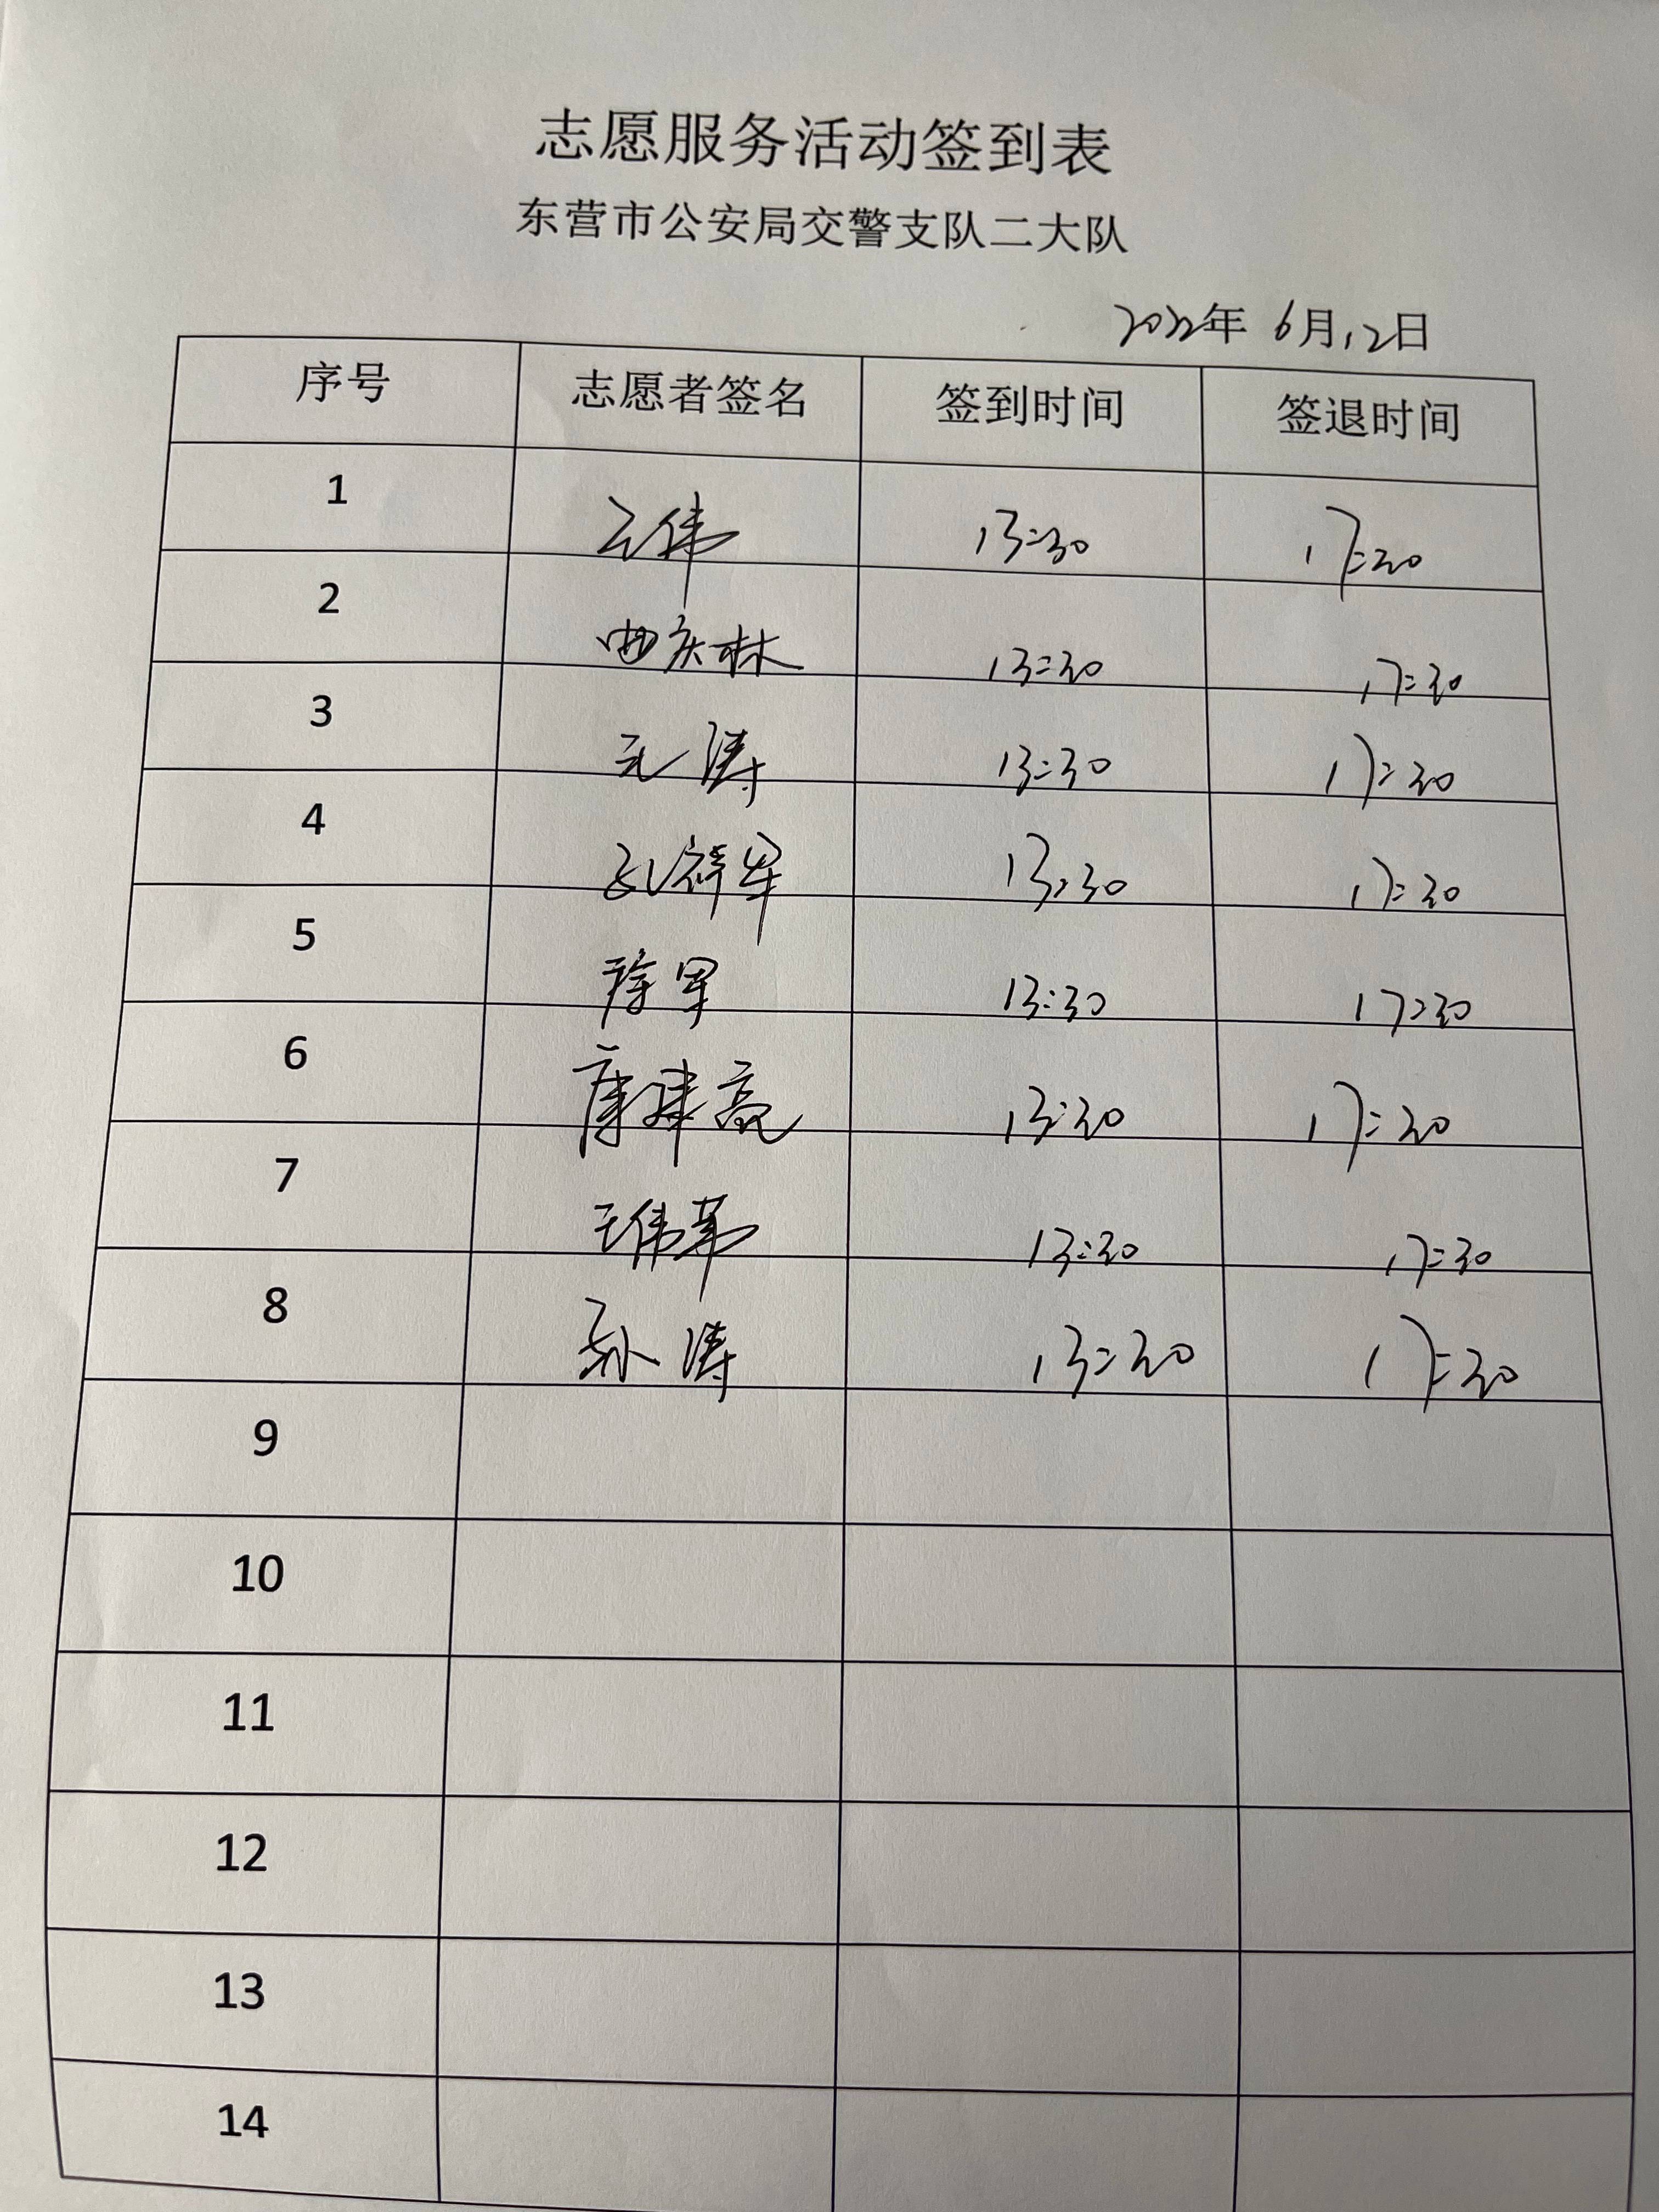 志愿服务活动签到表
东营市公安局交警支队二大队
2022年 6月12日
序号 志愿者签名 签到时间 签退时间
1 13:30 17:30
2 曲庆林 13:30 17:30
3 元涛 13:30 17:30
4 孔祥军 13:30 17:30
5 徐军 13:30 17:30
6 唐建亮 13:30 17:30
7 王伟革 13:30 17:30
8 孙涛 13:30 17:30
9
10
11
12
13
14